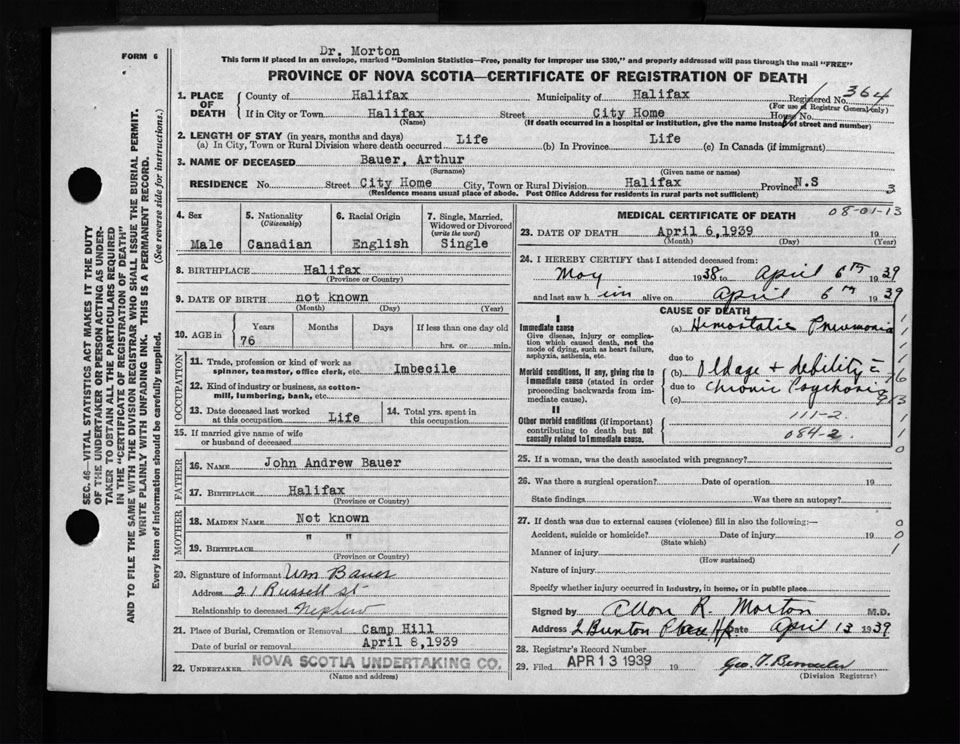 FORM 6
Dr. Morton
This form if placed in an envelope, marked "Dominion Statistics—Free, penalty for improper use $300," and properly addressed will pass through the mail "FREE"
PROVINCE OF NOVA SCOTIA—CERTIFICATE OF REGISTRATION OF DEATH
1. PLACE OF DEATH
County of Halifax Municipality of Halifax Registered No. 364
(For use of Registrar General only)
If in City or Town Halifax Street City Home House No.
(Name) (If death occurred in a hospital or institution, give the name instead of street and number)
2. LENGTH OF STAY (in years, months and days)
(a) In City, Town or Rural Division where death occurred Life (b) In Province Life (c) In Canada (if immigrant)
3. NAME OF DECEASED Bauer, Arthur
(Surname) (Given name or names)
RESIDENCE No. Street City Home City, Town or Rural Division Halifax Province N.S 3
(Residence means usual place of abode. Post Office Address for residents in rural parts not sufficient)
4. Sex Male
5. Nationality (Citizenship) Canadian
6. Racial Origin English
7. Single, Married, Widowed or Divorced (write the word) Single
8. BIRTHPLACE Halifax
(Province or Country)
9. DATE OF BIRTH not known
(Month) (Day) (Year)
10. AGE in Years Months Days If less than one day old
76 hrs. or min.
OCCUPATION
11. Trade, profession or kind of work as spinner, teamster, office clerk, etc. Imbecile
12. Kind of industry or business, as cotton-mill, lumbering, bank, etc.
13. Date deceased last worked at this occupation Life
14. Total yrs. spent in this occupation
15. If married give name of wife or husband of deceased
FATHER
16. NAME John Andrew Bauer
17. BIRTHPLACE Halifax
(Province or Country)
MOTHER
18. MAIDEN NAME Not known
19. BIRTHPLACE " "
(Province or Country)
20. Signature of informant Wm Bauer
Address 21 Russell St
Relationship to deceased Nephew
21. Place of Burial, Cremation or Removal Camp Hill
Date of burial or removal April 8,1939
22. UNDERTAKER NOVA SCOTIA UNDERTAKING CO.
(Name and address)
MEDICAL CERTIFICATE OF DEATH 08-01-13
23. DATE OF DEATH April 6,1939 19
(Month) (Day) (Year)
24. I HEREBY CERTIFY that I attended deceased from:
May 1938 to April 6th 1939
and last saw him alive on April 6th 1939
CAUSE OF DEATH
I
Immediate cause
Give disease, injury or complication which caused death, not the mode of dying, such as heart failure, asphyxia, asthenia, etc.
(a) Hemostatic Pneumonia
due to
Morbid conditions, if any, giving rise to immediate cause (stated in order proceeding backwards from immediate cause).
(b) Old age + debility =
due to Chronic Psychosis
(c)
II
Other morbid conditions (if important) contributing to death but not causally related to immediate cause.
111-2.
084-2.
25. If a woman, was the death associated with pregnancy?
26. Was there a surgical operation? Date of operation 19
State findings Was there an autopsy?
27. If death was due to external causes (violence) fill in also the following:— 0
Accident, suicide or homicide? Date of injury 19 0
(State which)
Manner of injury 1
(How sustained)
Nature of injury
Specify whether injury occurred in industry, in home, or in public place
Signed by Allon R. Morton M.D.
Address Date April 13 1939
28. Registrar's Record Number
29. Filed APR 13 1939 19
(Division Registrar)
SEC. 46—VITAL STATISTICS ACT MAKES IT THE DUTY
OF THE UNDERTAKER OR PERSON ACTING AS UNDER-
TAKER TO OBTAIN ALL THE PARTICULARS REQUIRED
IN THE "CERTIFICATE OF REGISTRATION OF DEATH"
AND TO FILE THE SAME WITH THE DIVISION REGISTRAR WHO SHALL ISSUE THE BURIAL PERMIT.
WRITE PLAINLY WITH UNFADING INK. THIS IS A PERMANENT RECORD.
Every item of information should be carefully supplied. (See reverse side for instructions.)